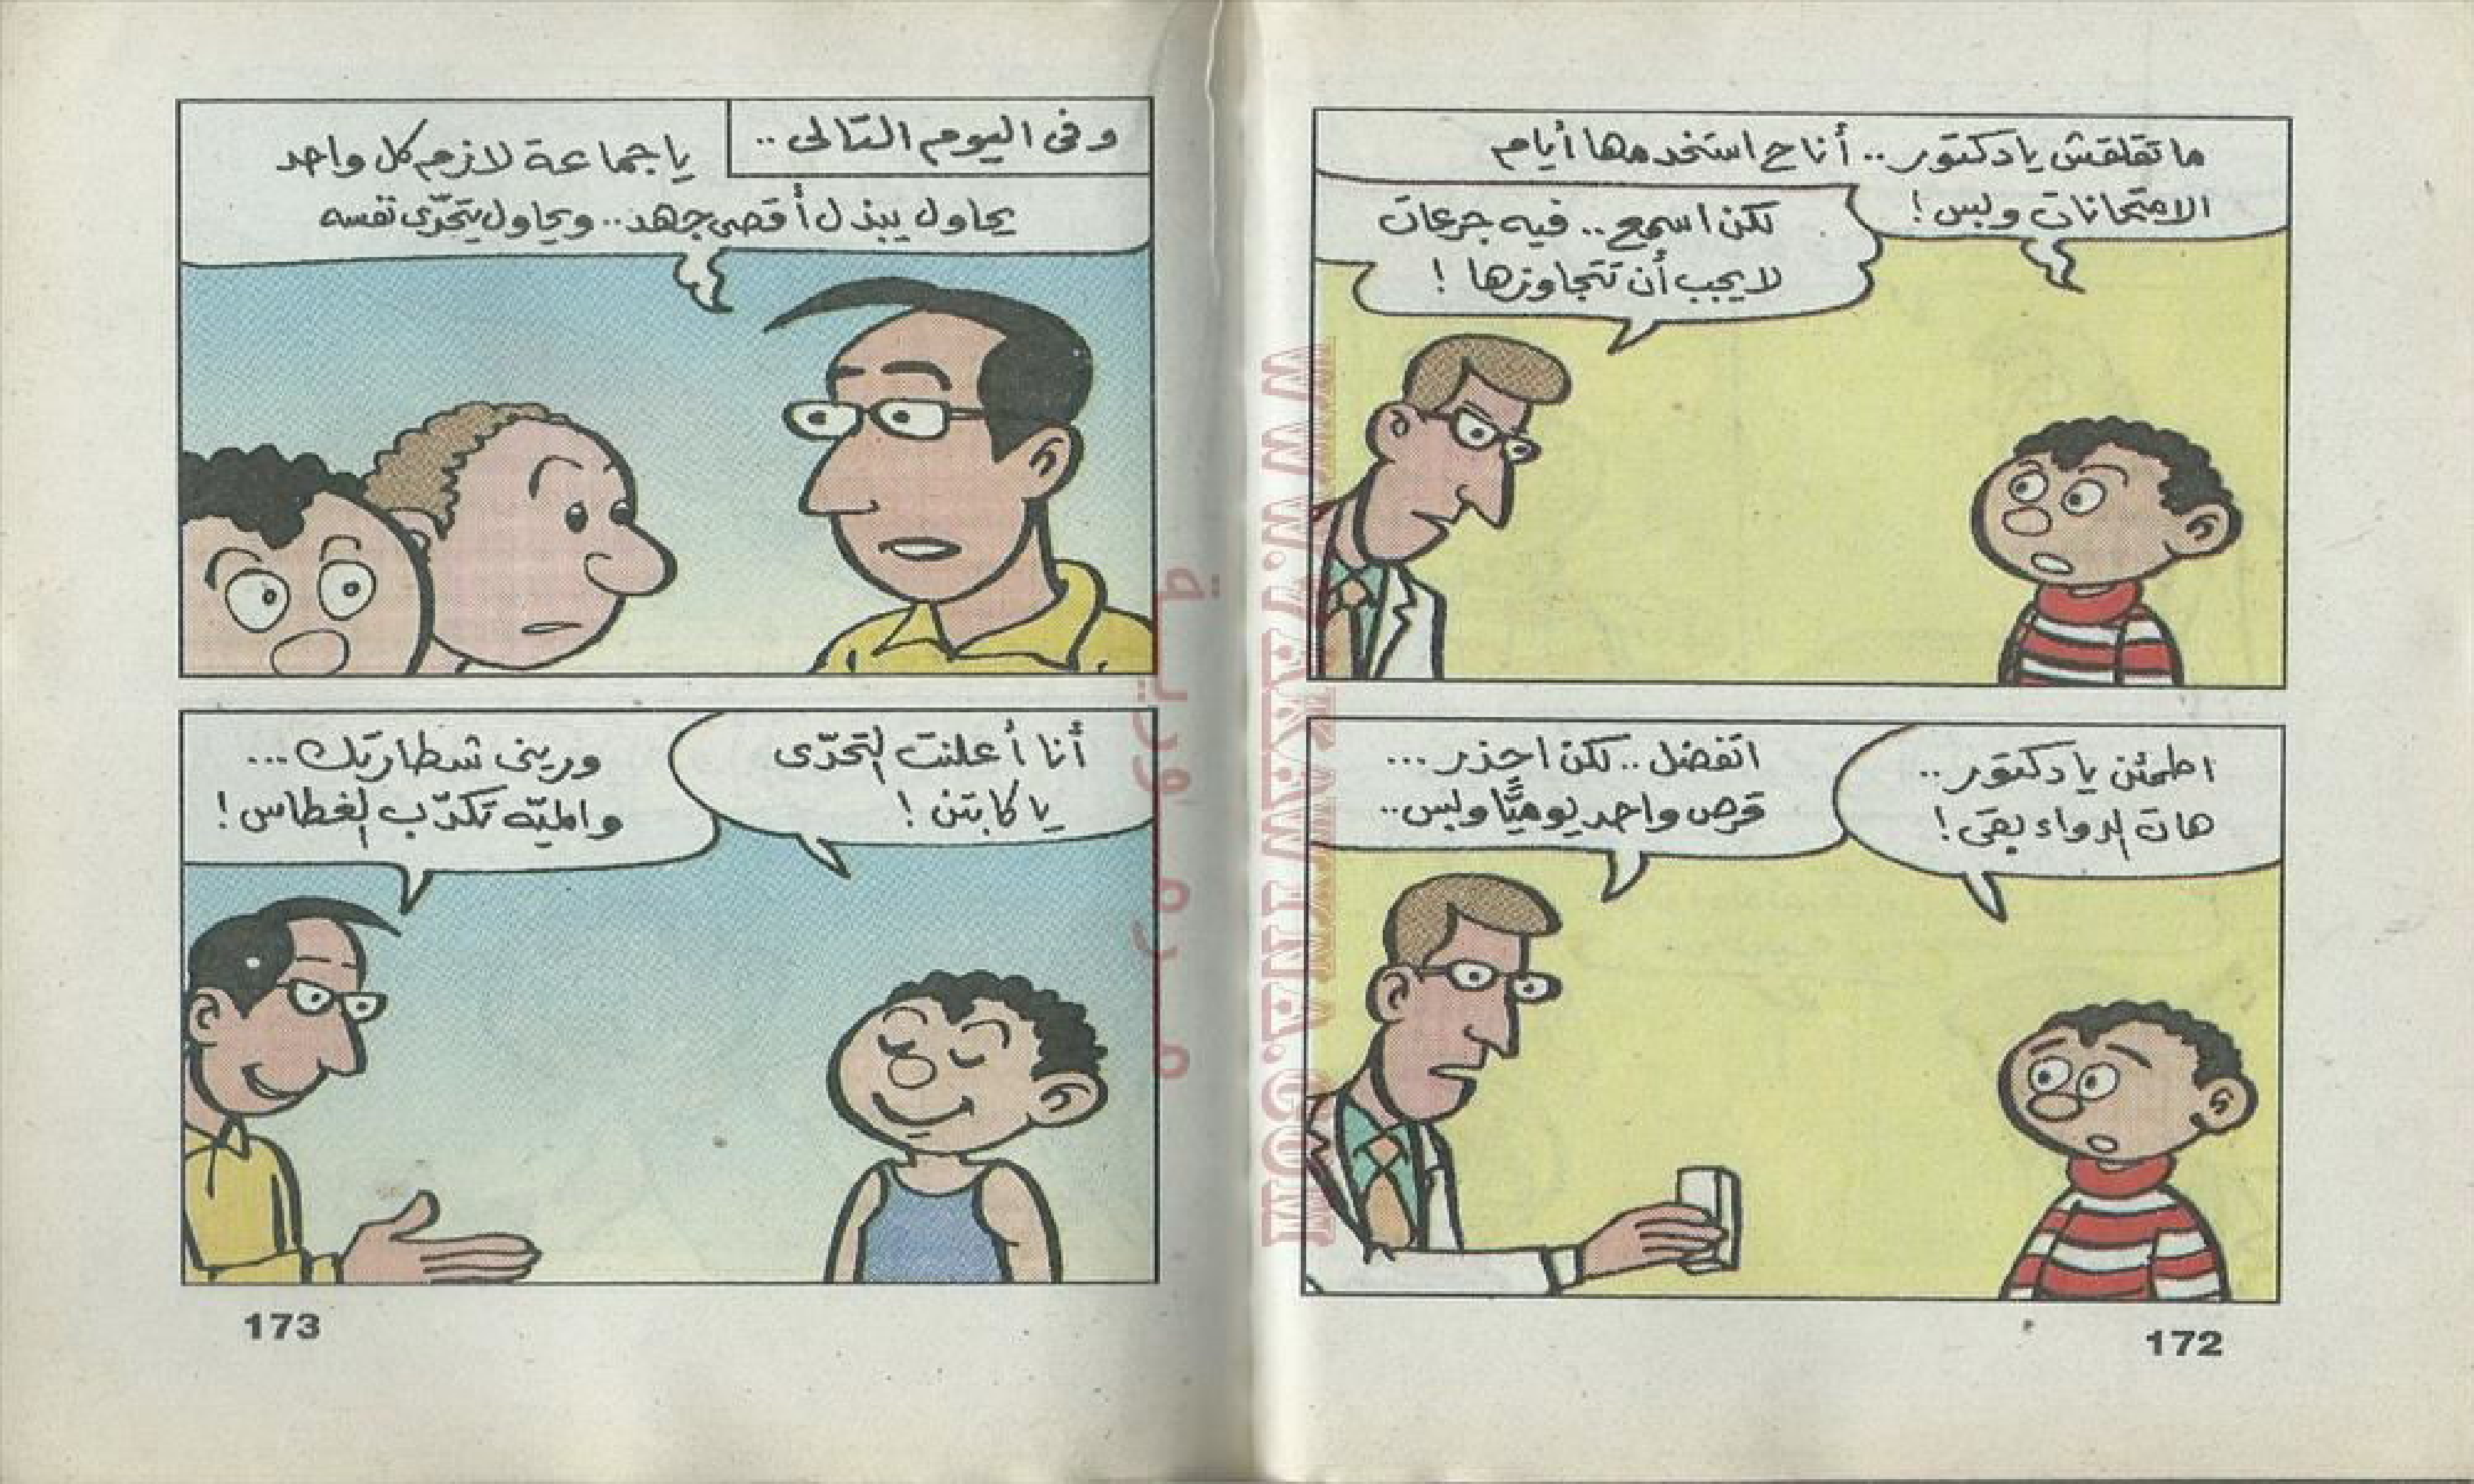 ما تقلقش يا دكتور .. أنا ح استخدمها أيام
الامتحانات وبس !
لكن اسمع .. فيه جرعات
لا يجب أن تتجاوزها !
اطمئن يا دكتور ..
هات الدواء بقى !
اتفضل .. لكن احذر ...
قرص واحد يوميًّا وبس ..
172
وفى اليوم التالى ..
يا جماعة لازم كل واحد
يحاول يبذل أقصى جهد .. ويحاول يتحدّى نفسه
أنا أعلنت التحدّى
يا كابتن !
ورينى شطارتك ...
والميّه تكدّب الغطاس !
173
WWW.VAKEMEKVA